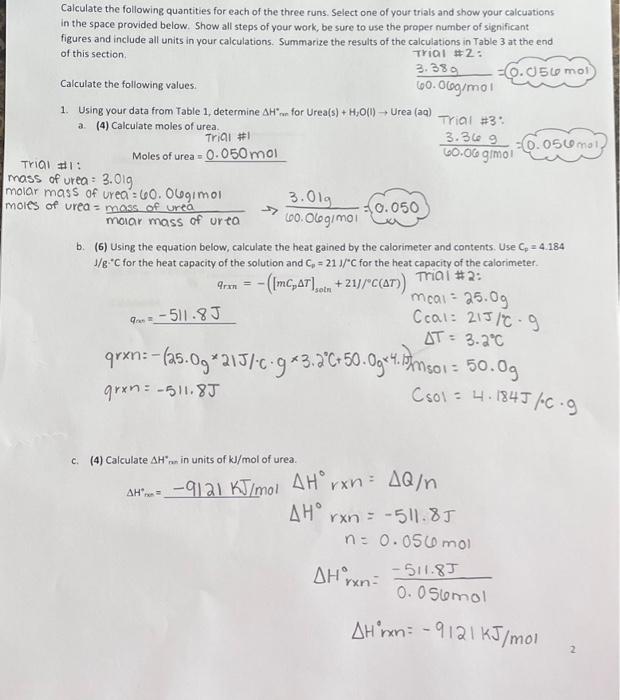 Calculate the following quantities for each of the three runs. Select one of your trials and show your calcuations
in the space provided below. Show all steps of your work, be sure to use the proper number of significant
figures and include all units in your calculations. Summarize the results of the calculations in Table 3 at the end
of this section.
Trial #2:
3.38g / 60.06g/mol = 0.056 mol
Calculate the following values.
1. Using your data from Table 1, determine ΔH°rxn for Urea(s) + H₂O(l) → Urea (aq)
a. (4) Calculate moles of urea.
Trial #3:
3.36 g / 60.06 g/mol = 0.056mol
Trial #1
Moles of urea = 0.050mol
Trial #1:
mass of urea = 3.01g
molar mass of urea = 60.06g/mol
moles of urea = mass of urea / molar mass of urea → 3.01g / 60.06g/mol = 0.050
b. (6) Using the equation below, calculate the heat gained by the calorimeter and contents. Use Cₚ = 4.184
J/g·°C for the heat capacity of the solution and Cₚ = 21 J/°C for the heat capacity of the calorimeter.
qrxn = −([mCₚΔT]soln + 21J/°C(ΔT))
Trial #2:
mcal = 25.0g
qrxn = -511.8J
Ccal = 21J/°C·g
ΔT = 3.2°C
qrxn = -(25.0g*21J/°C·g*3.2°C+50.0g*4.1
msol = 50.0g
qrxn = -511.8J
Csol = 4.184J/°C·g
c. (4) Calculate ΔH°rxn in units of kJ/mol of urea.
ΔH°rxn = -9121 KJ/mol
ΔH°rxn = ΔQ/n
ΔH°rxn = -511.8J
n = 0.056 mol
ΔH°rxn = -511.8J / 0.056mol
ΔH°rxn = -9121KJ/mol
2